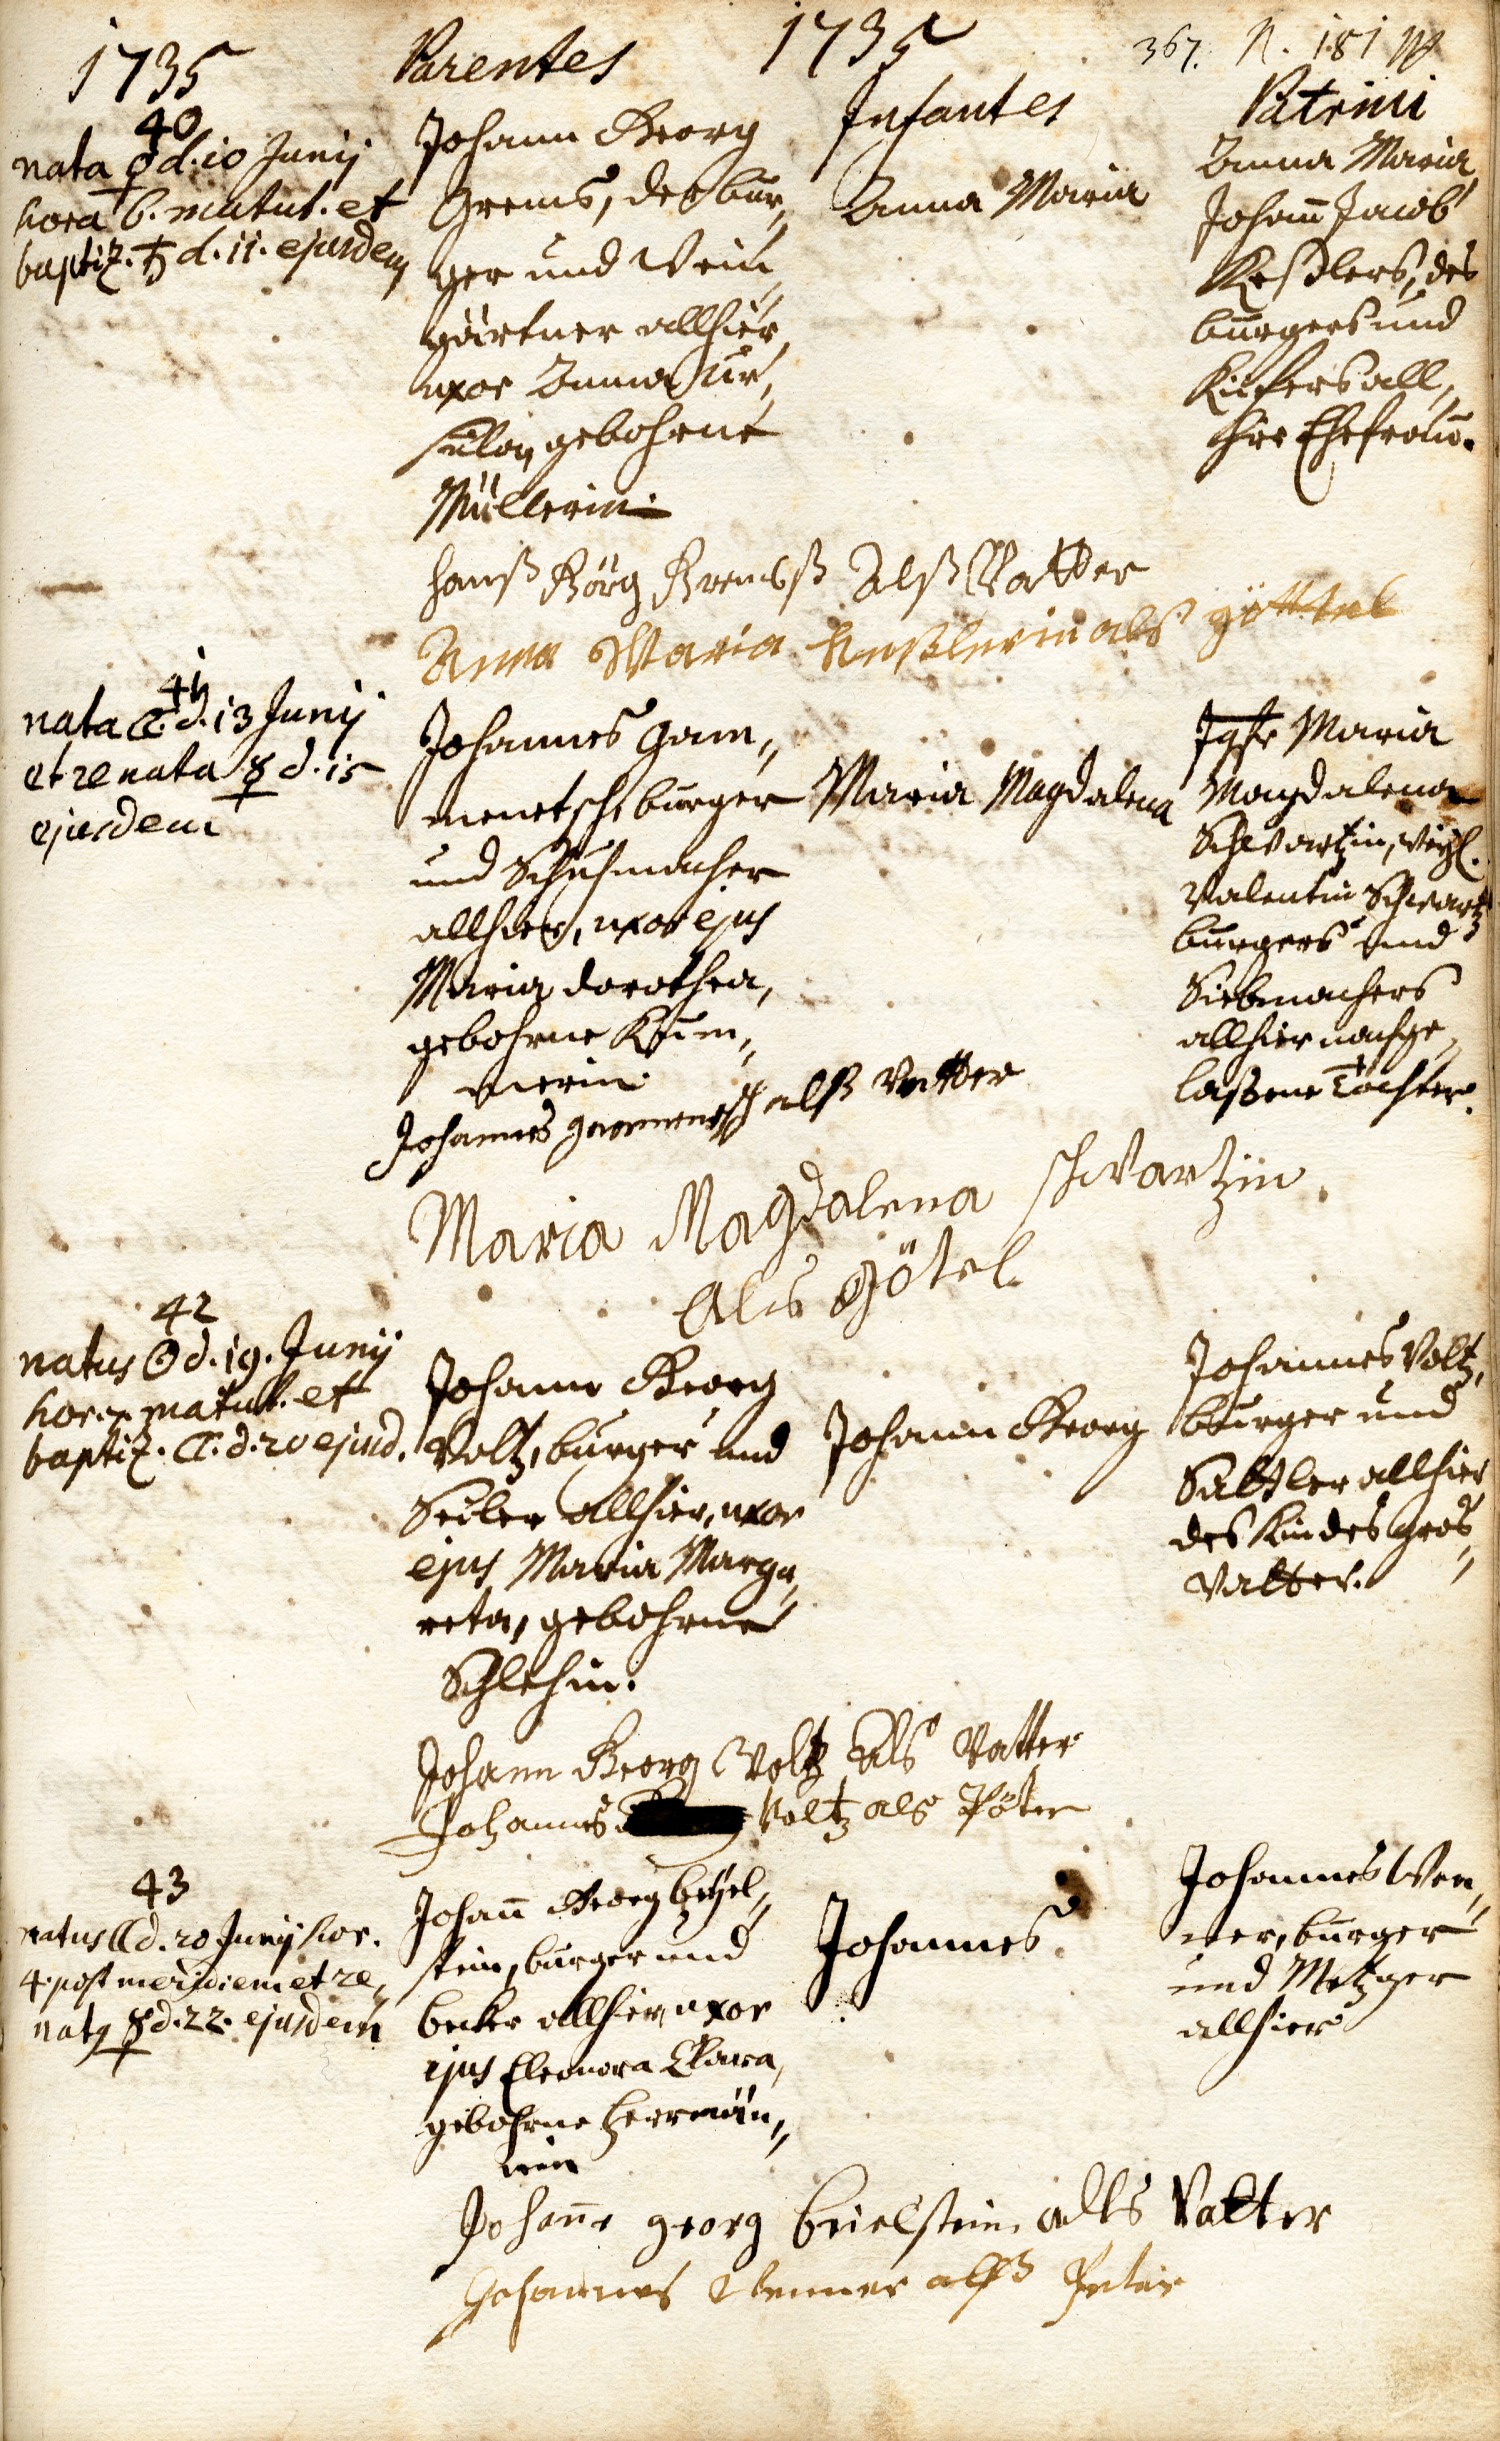 1735
Parentes
1735
367. N. 181
Infantes
Patrini
40
nata ♀ d. 10 Junij
hora 6. matut. et
baptiz. ♄ d. 11. ejusdem
Johann Georg
Grems, der bur„
ger und Wein„
gärtner allhier,
uxor Anna Ur„
sula, gebohrne
Müllerin.
Anna Maria
Anna Maria
Johañ Jacob
Keßlers, des
burgers und
Kiefers all„
hier Ehefrau.
hanß Görg Gremß Alß Vatter
Anna Maria Keßlerin als göttel
41
nata ☾ d. 13 Junij
et renata ☿ d. 15
ejusdem
Johannes Gam„
menetsch, burger
und Schuhmacher
allhier, uxor ejus
Maria Dorothea,
gebohrne Kum„
merin.
Maria Magdalena
Jgfr Maria
Magdalena
Schwartzin, weyl.
Valentin Schwartz
burgers und
Siebmachers
allhier nachge„
laßene Tochter.
Johannes gammenetsch alß Vatter
Maria Magdalena schwartzin
Als Götel
42
natus ☉ d. 19. Junij
hor. 7. matut. et
baptiz. ☾. d. 20 ejusd.
Johann Georg
Voltz, burger und
Seiler allhier, uxor
ejus Maria Marga„
reta, gebohrne
Schlehin.
Johann Georg
Johannes Voltz,
burger und
Sattler allhier
des Kindes Gros„
Vatter.
Johann Georg Voltz Als Vatter
Johannes Voltz als Pöter
43
natus ☾ d. 20 Junij hor.
4. post meridiem et re„
natꝰ ☿ d. 22. ejusdem
Johañ Georg beyel„
stein, burger und
becker allhier, uxor
ejus Eleonora Clara,
gebohrne Herrmän„
nin
Johannes
Johannes Wen„
ner, burger
und Metzger
allhier
Johañe georg beielstein als Vatter
Johannes Wenner alß Peter